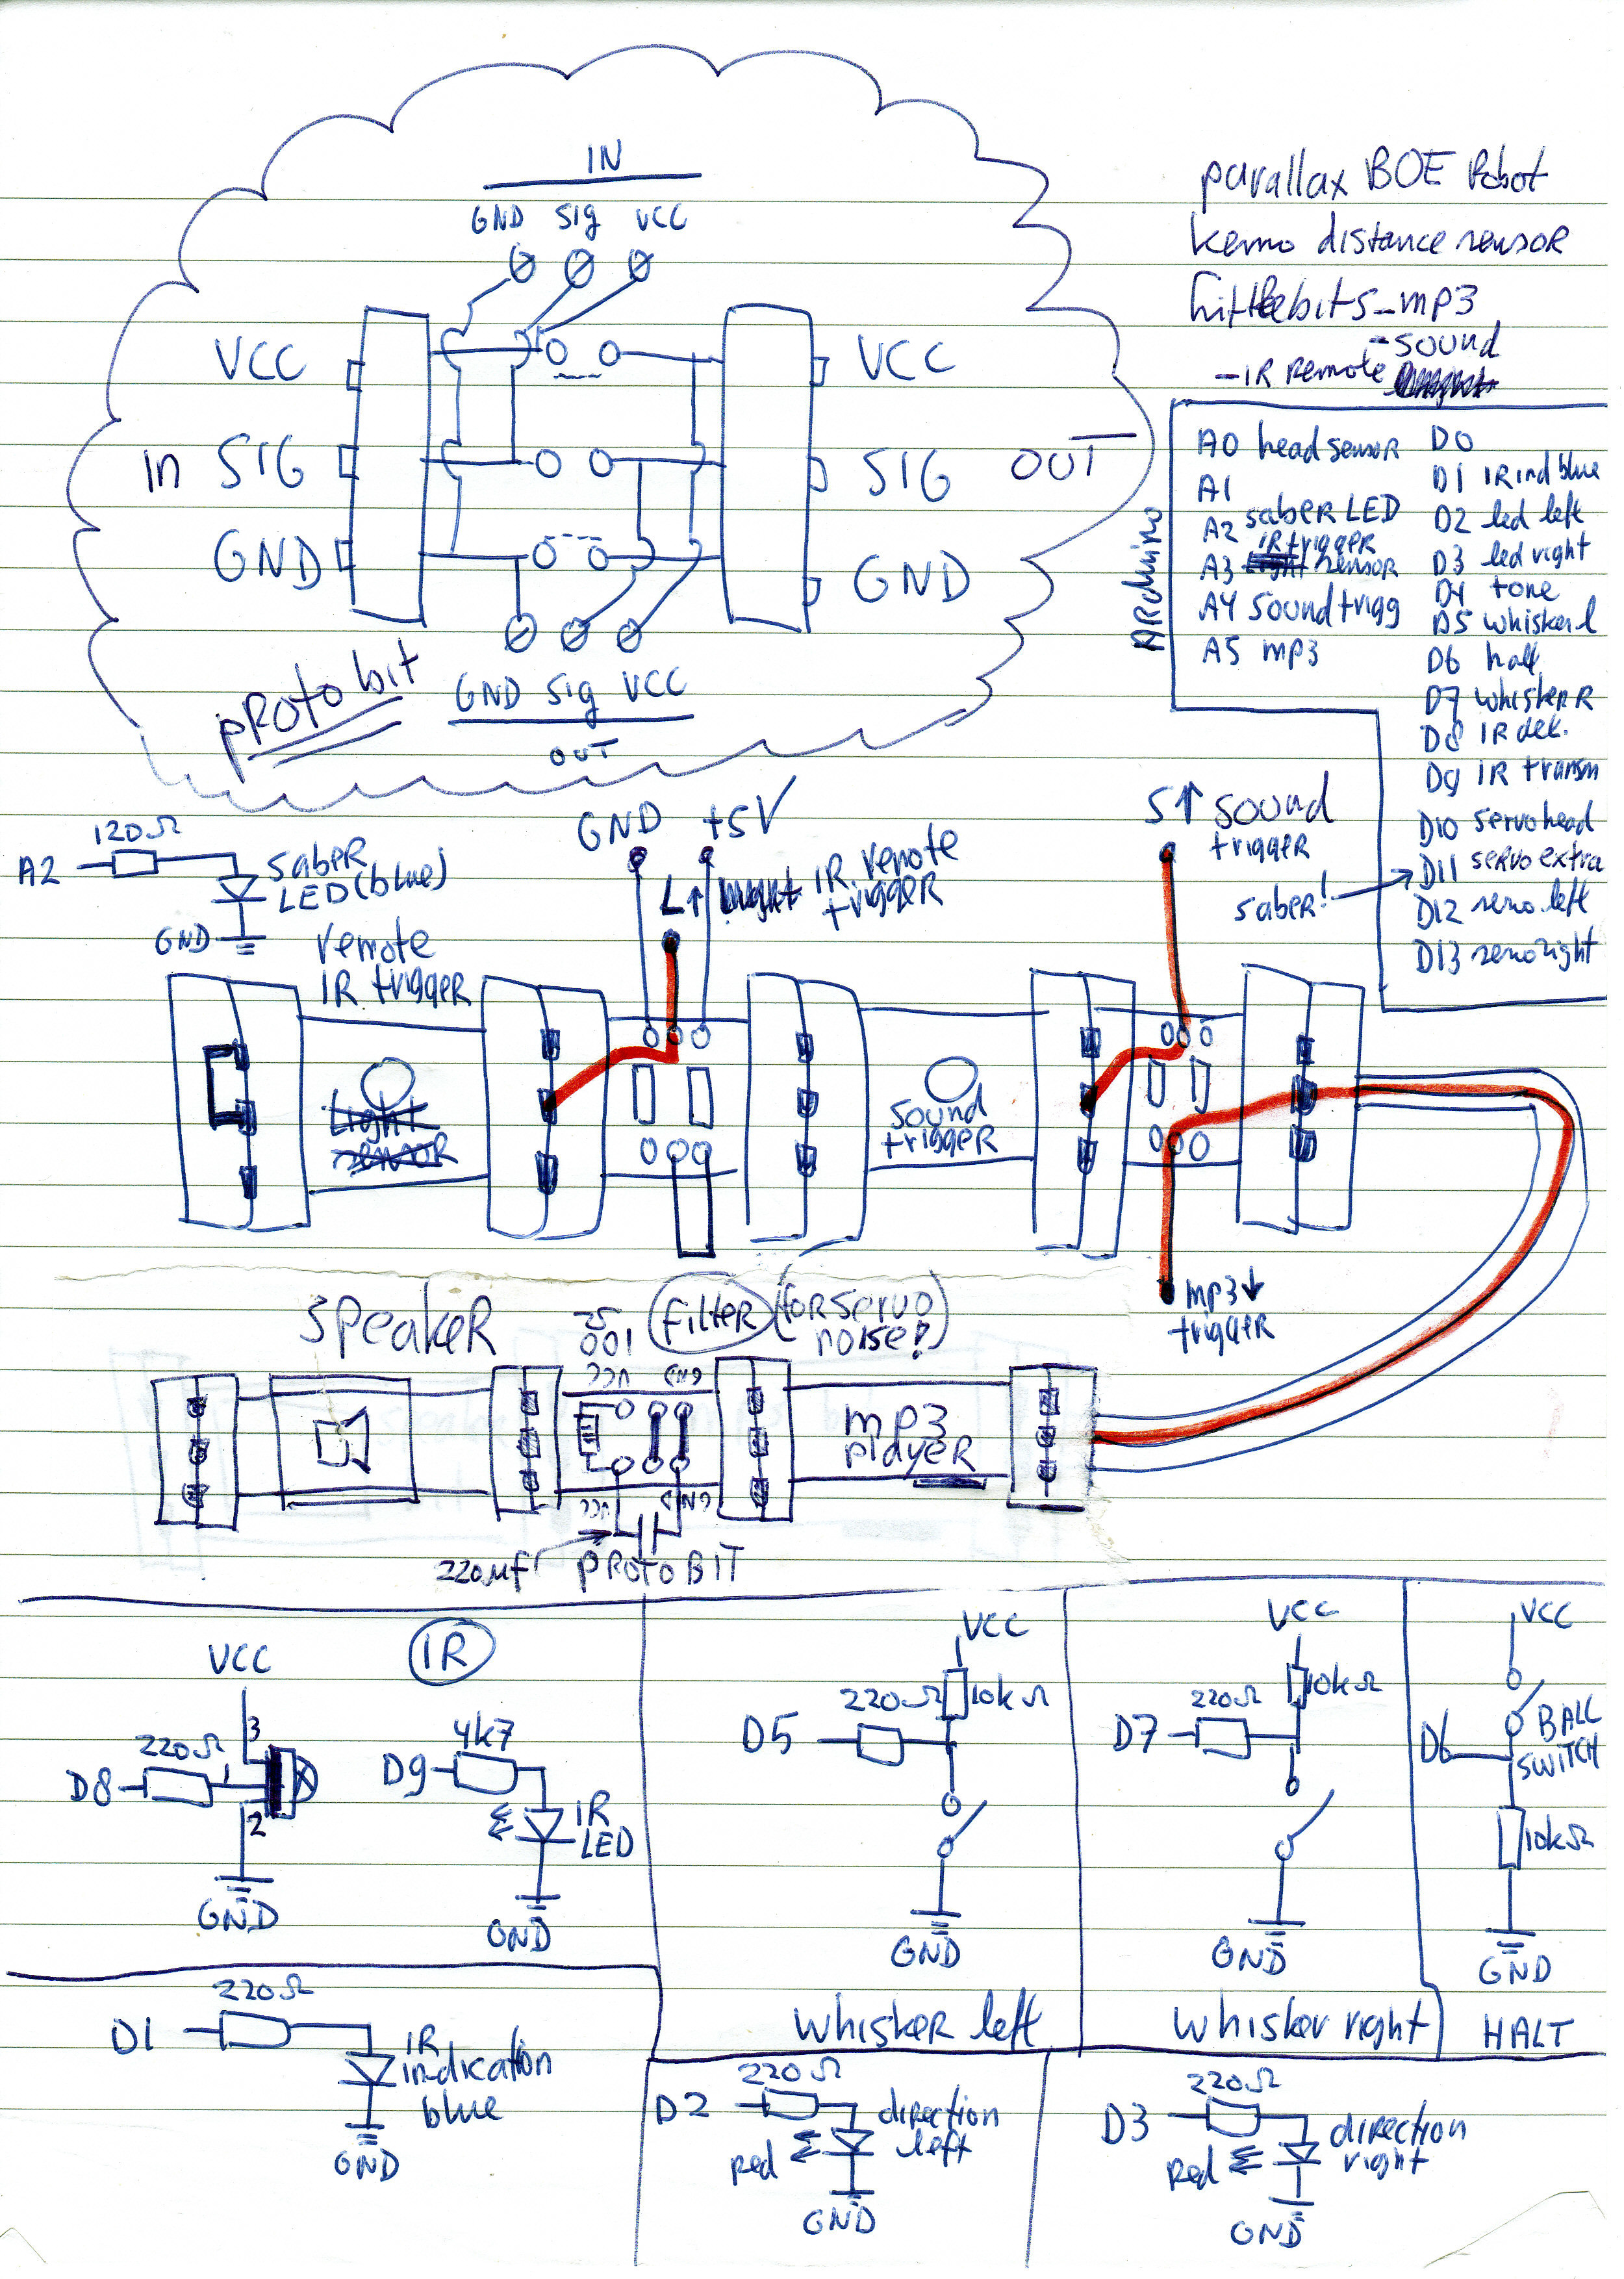 IN
GND Sig VCC
VCC
VCC
in SIG
SIG OUT
GND
GND
GND Sig VCC
OUT
pROTO bit
parallax BOE Robot
kemo distance sensoR
littlebits_mp3
- SOUND
- IR Remote
ARduino
A0 head sensoR
A1
A2 sabeR LED
A3 IR triggeR sensoR
A4 Sound trigg
A5 mp3
D0
D1 IR ind blue
D2 led left
D3 led right
D4 tone
D5 whisker l
D6 halt
D7 whiskeR R
D8 IR det.
D9 IR transm
D10 servo head
D11 servo extra
D12 servo left
D13 servo right
sabeR!
120Ω
A2
SabeR
LED (blue)
GND
GND +5V
L↑ light IR remote
triggeR
S↑ Sound
triggeR
remote
IR triggeR
Light
sensoR
Sound
triggeR
mp3↓
triggeR
SpeakeR
FilteR (for servo
noise!)
VCC GND
mp3
playeR
VCC GND
220µF
PROTO BIT
IR
VCC
3
220Ω
D8
1
2
GND
4k7
D9
IR
LED
GND
VCC
220Ω 10kΩ
D5
GND
WhiskeR left
VCC
220Ω 10kΩ
D7
GND
Whisker right
VCC
D6
BALL
SWITCH
10kΩ
GND
HALT
220Ω
D1
IR
indication
blue
GND
220Ω
D2
direction
left
Red
GND
220Ω
D3
direction
right
Red
GND